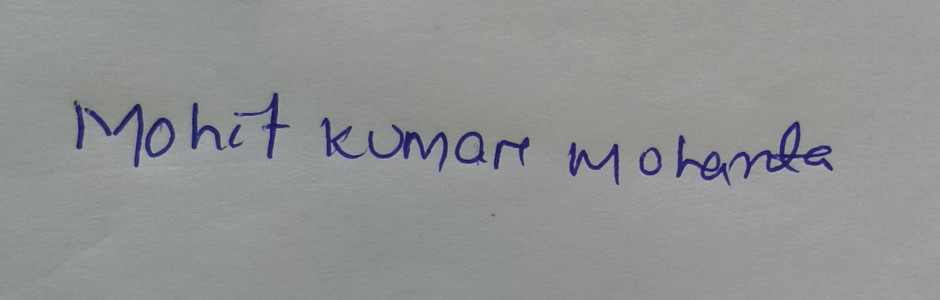 Mohit kumar Mohanta